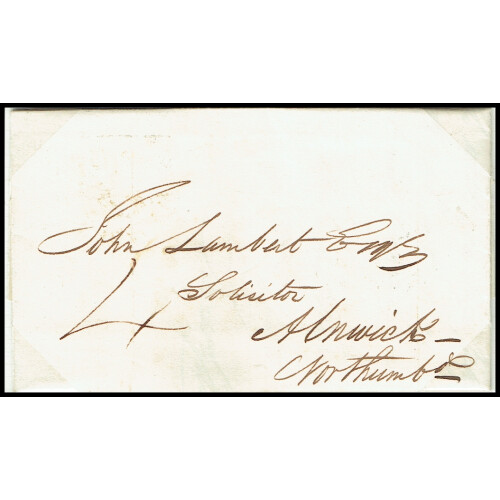 John Lambert Esqr
4
Solicitor
Alnwick
Northumbd